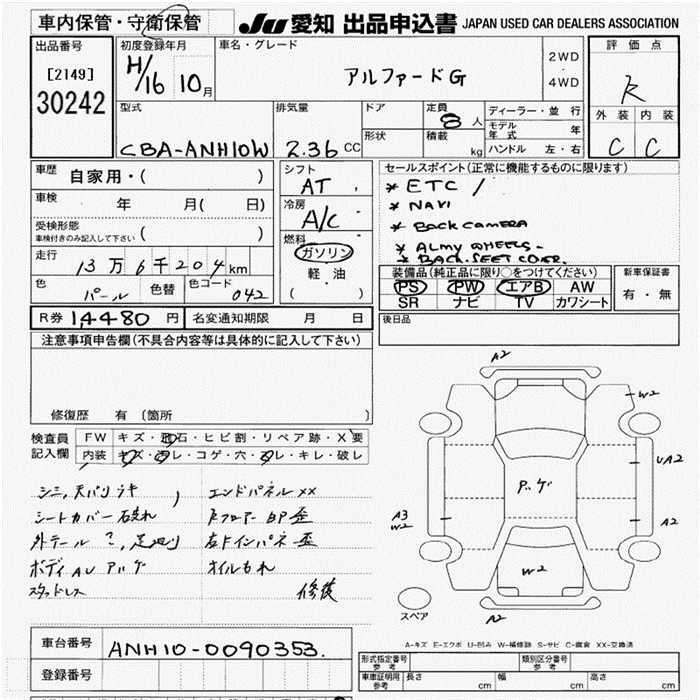 車内保管・守衛保管
JU 愛知 出品申込書 JAPAN USED CAR DEALERS ASSOCIATION
出品番号
[2149]
30242
初度登録年月
H/16 10月
車名・グレード
アルファードG
2WD
・
4WD
評価点
R
外装 内装
C C
型式
CBA-ANH10W
排気量
2.36 CC
ドア
形状
定員
8 人
積載
kg
ディーラー・並行
モデル年式 年
ハンドル 左・右
車歴
自家用・( )
車検
年 月( 日)
受検形態
車検付きのみ記入して下さい ( )
走行
13万6千204km
色
パール
色替
色コード
042
シフト
AT
冷房
A/C
燃料
ガソリン
軽油
( )
セールスポイント(正常に機能するものに限ります)
* ETC /
* NAVI
* BACK CAMERA
* ALMY WHEELS-
* BACK.SEET COVER.
装備品(純正品に限り○をつけてください)
PS PW エアB AW
SR ナビ TV カワシート
新車保証書
有・無
R券 14480 円
名変通知期限 月 日
後日品
注意事項申告欄(不具合内容等は具体的に記入して下さい)
修復歴 有 〔箇所 〕
検査員
記入欄
FW キズ・飛石・ヒビ割・リペア跡・X要
内装 キズ・汚レ・コゲ・穴・スレ・キレ・破レ
シミ,天バリキ
エンドパネルXX
シートカバー 破れ
Fフロアー BP歪
外テール
左Fインパネ歪
ボディAU アルゲ
オイルもれ
スタッドレス
修復
A2
W2
UA2
A2
A3
W2
W2
A2
スペア
A-キズ E-エクボ U-凹み W-補修跡 S-サビ C-腐食 XX-交換済
車台番号
ANH10-0090353.
登録番号
形式指定番号
参考
類別区分番号
参考
車庫証明用
参考
長さ cm
幅 cm
高さ cm